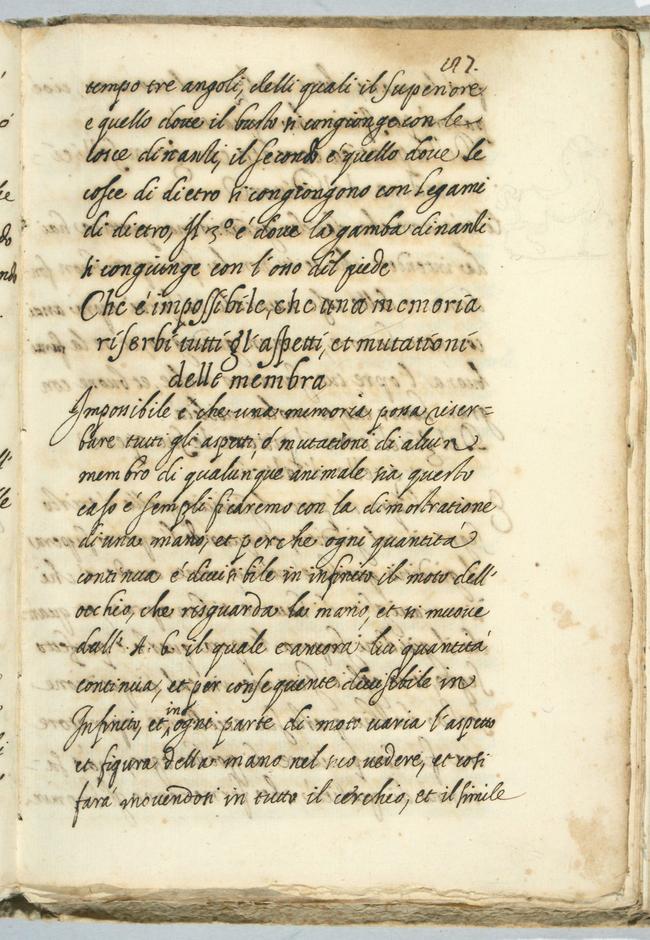 197.
tempo tre angoli, delli quali il superiore
e quello doue il busto si congionge con le
cosce dinanti, il secondo é quello doue le
cosce di dietro si congiongono con legami
di dietro, Il 3º é doue la gamba dinanti
si congiunge con l'ono dil piede
Che é impossibile, che una memoria
riserbi tutti gl'aspetti, et mutationi
delle membra
Impossibile é che una memoria possa riser=
bare tutti gli aspetti, ó mutationi di alcun
membro di qualunque animale sia questo
caso é sempli ficaremo con la dimostratione
di una mano, et perche ogni quantitá
continua é diuisibile in infinito il moto dell'
occhio, che risguarda la mano, et si muoue
dall' A. b il quale e ancora lui quantitá
continua, et per consequente diuisibile in
Infinito, et in ogni parte di moto uaria l'aspetto
et figura della mano nel suo uedere, et cosi
fará mouendosi in tutto il cerchio, et il simile